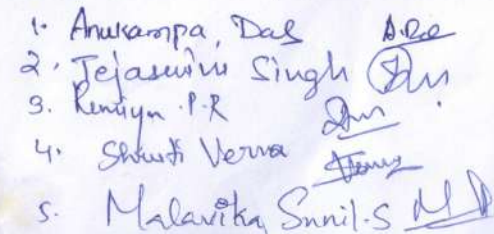 1. Anukampa, Das A.Das
2. Tejaswini Singh
3. Remiya .P.R
4. Shruti Verma
5. Malavika Sunil.S